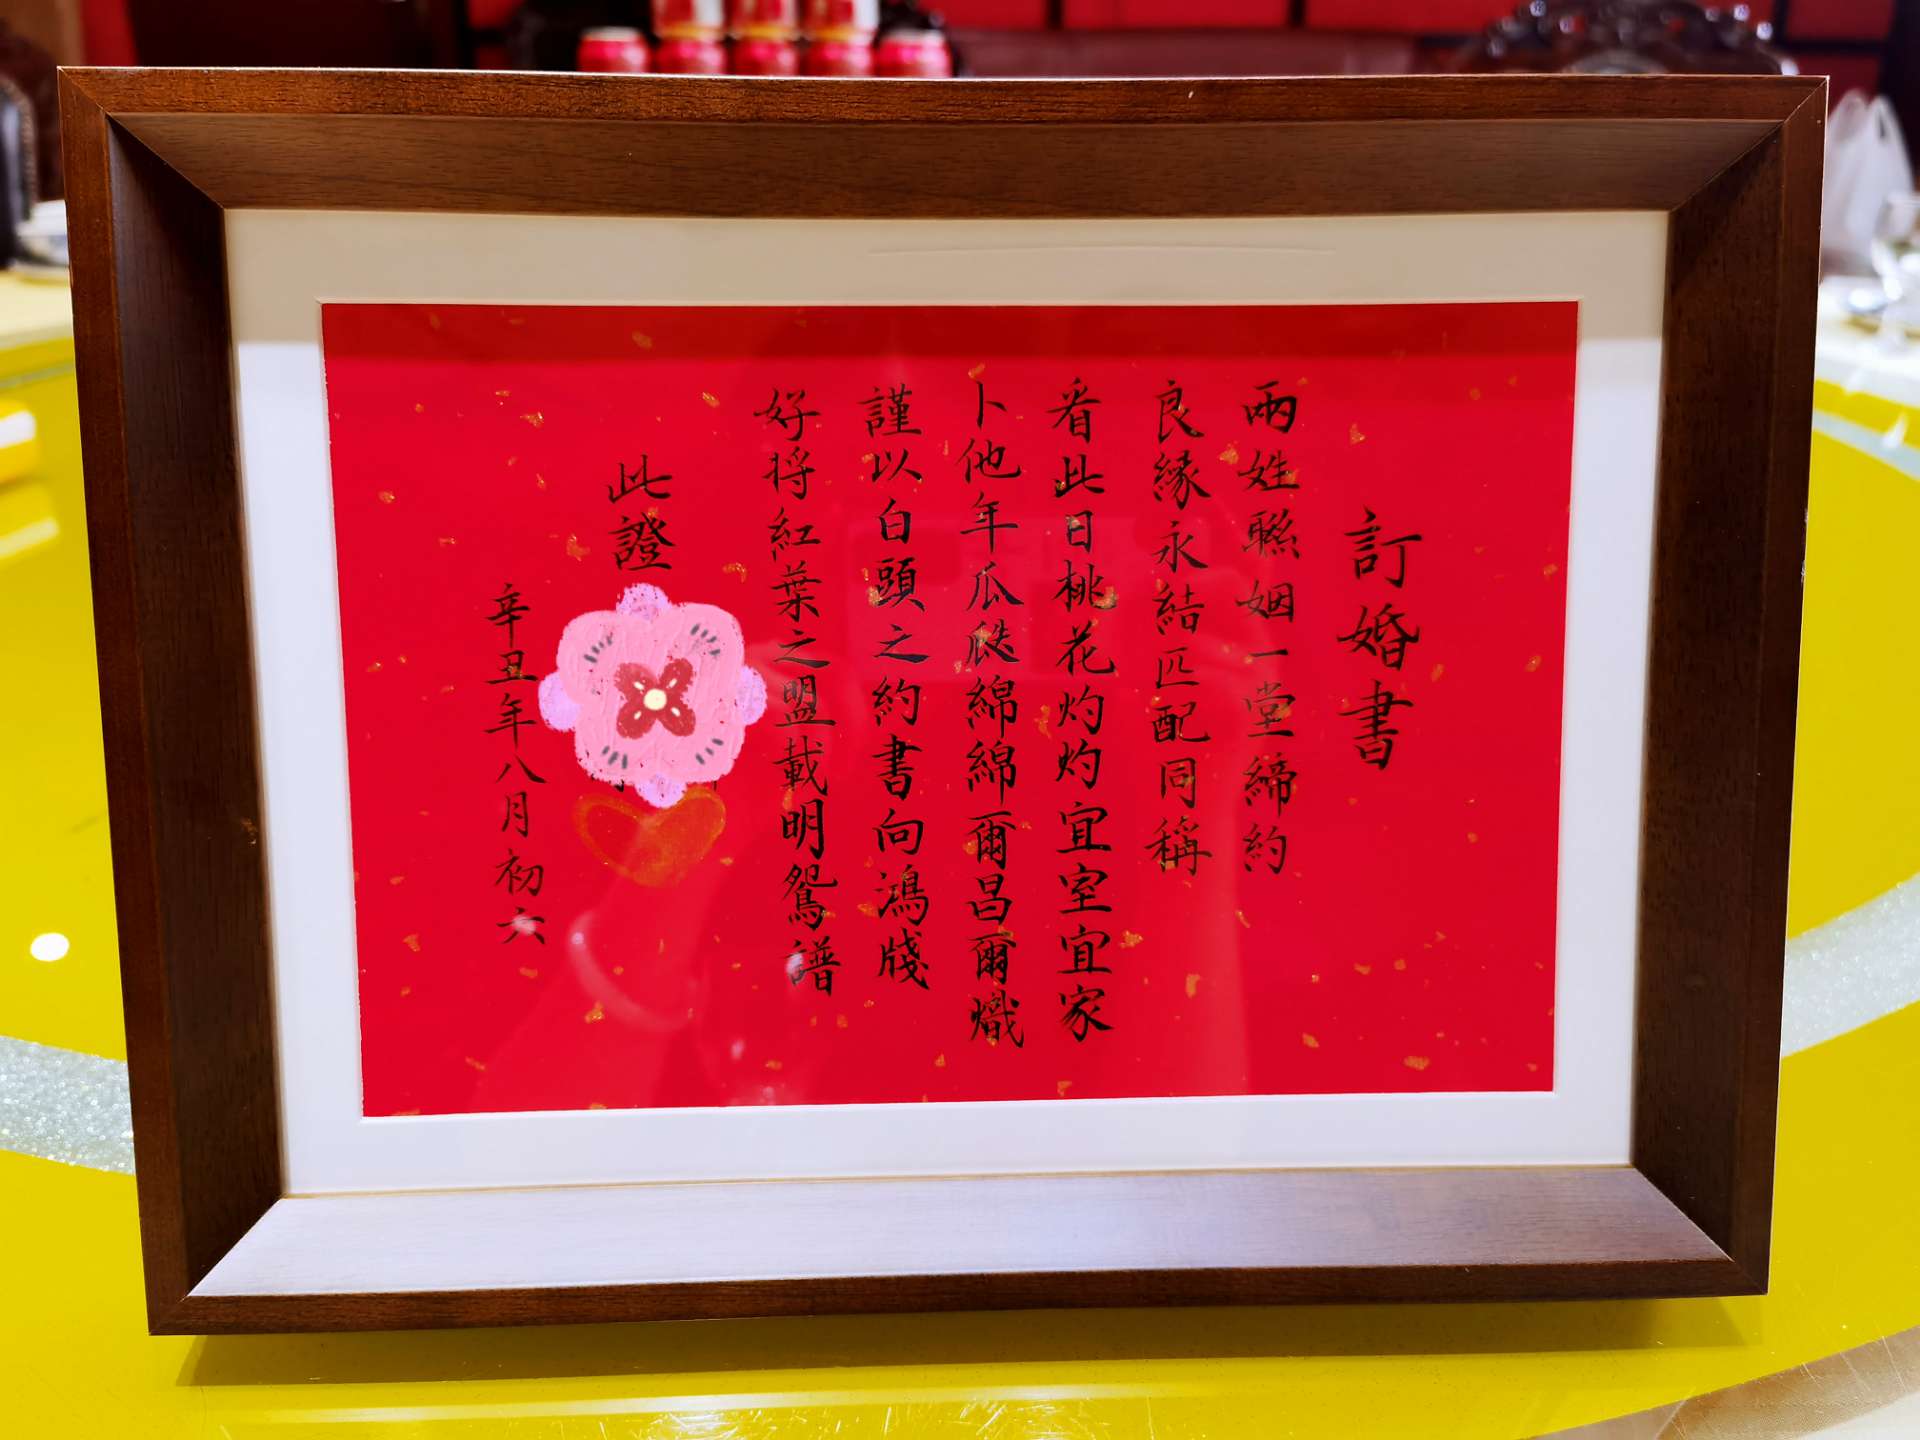 訂婚書
兩姓聯姻一堂締約
良緣永結匹配同稱
看此日桃花灼灼宜室宜家
卜他年瓜瓞綿綿爾昌爾熾
謹以白頭之約書向鴻牋
好将紅葉之盟載明鴛譜
此證
辛丑年八月初六